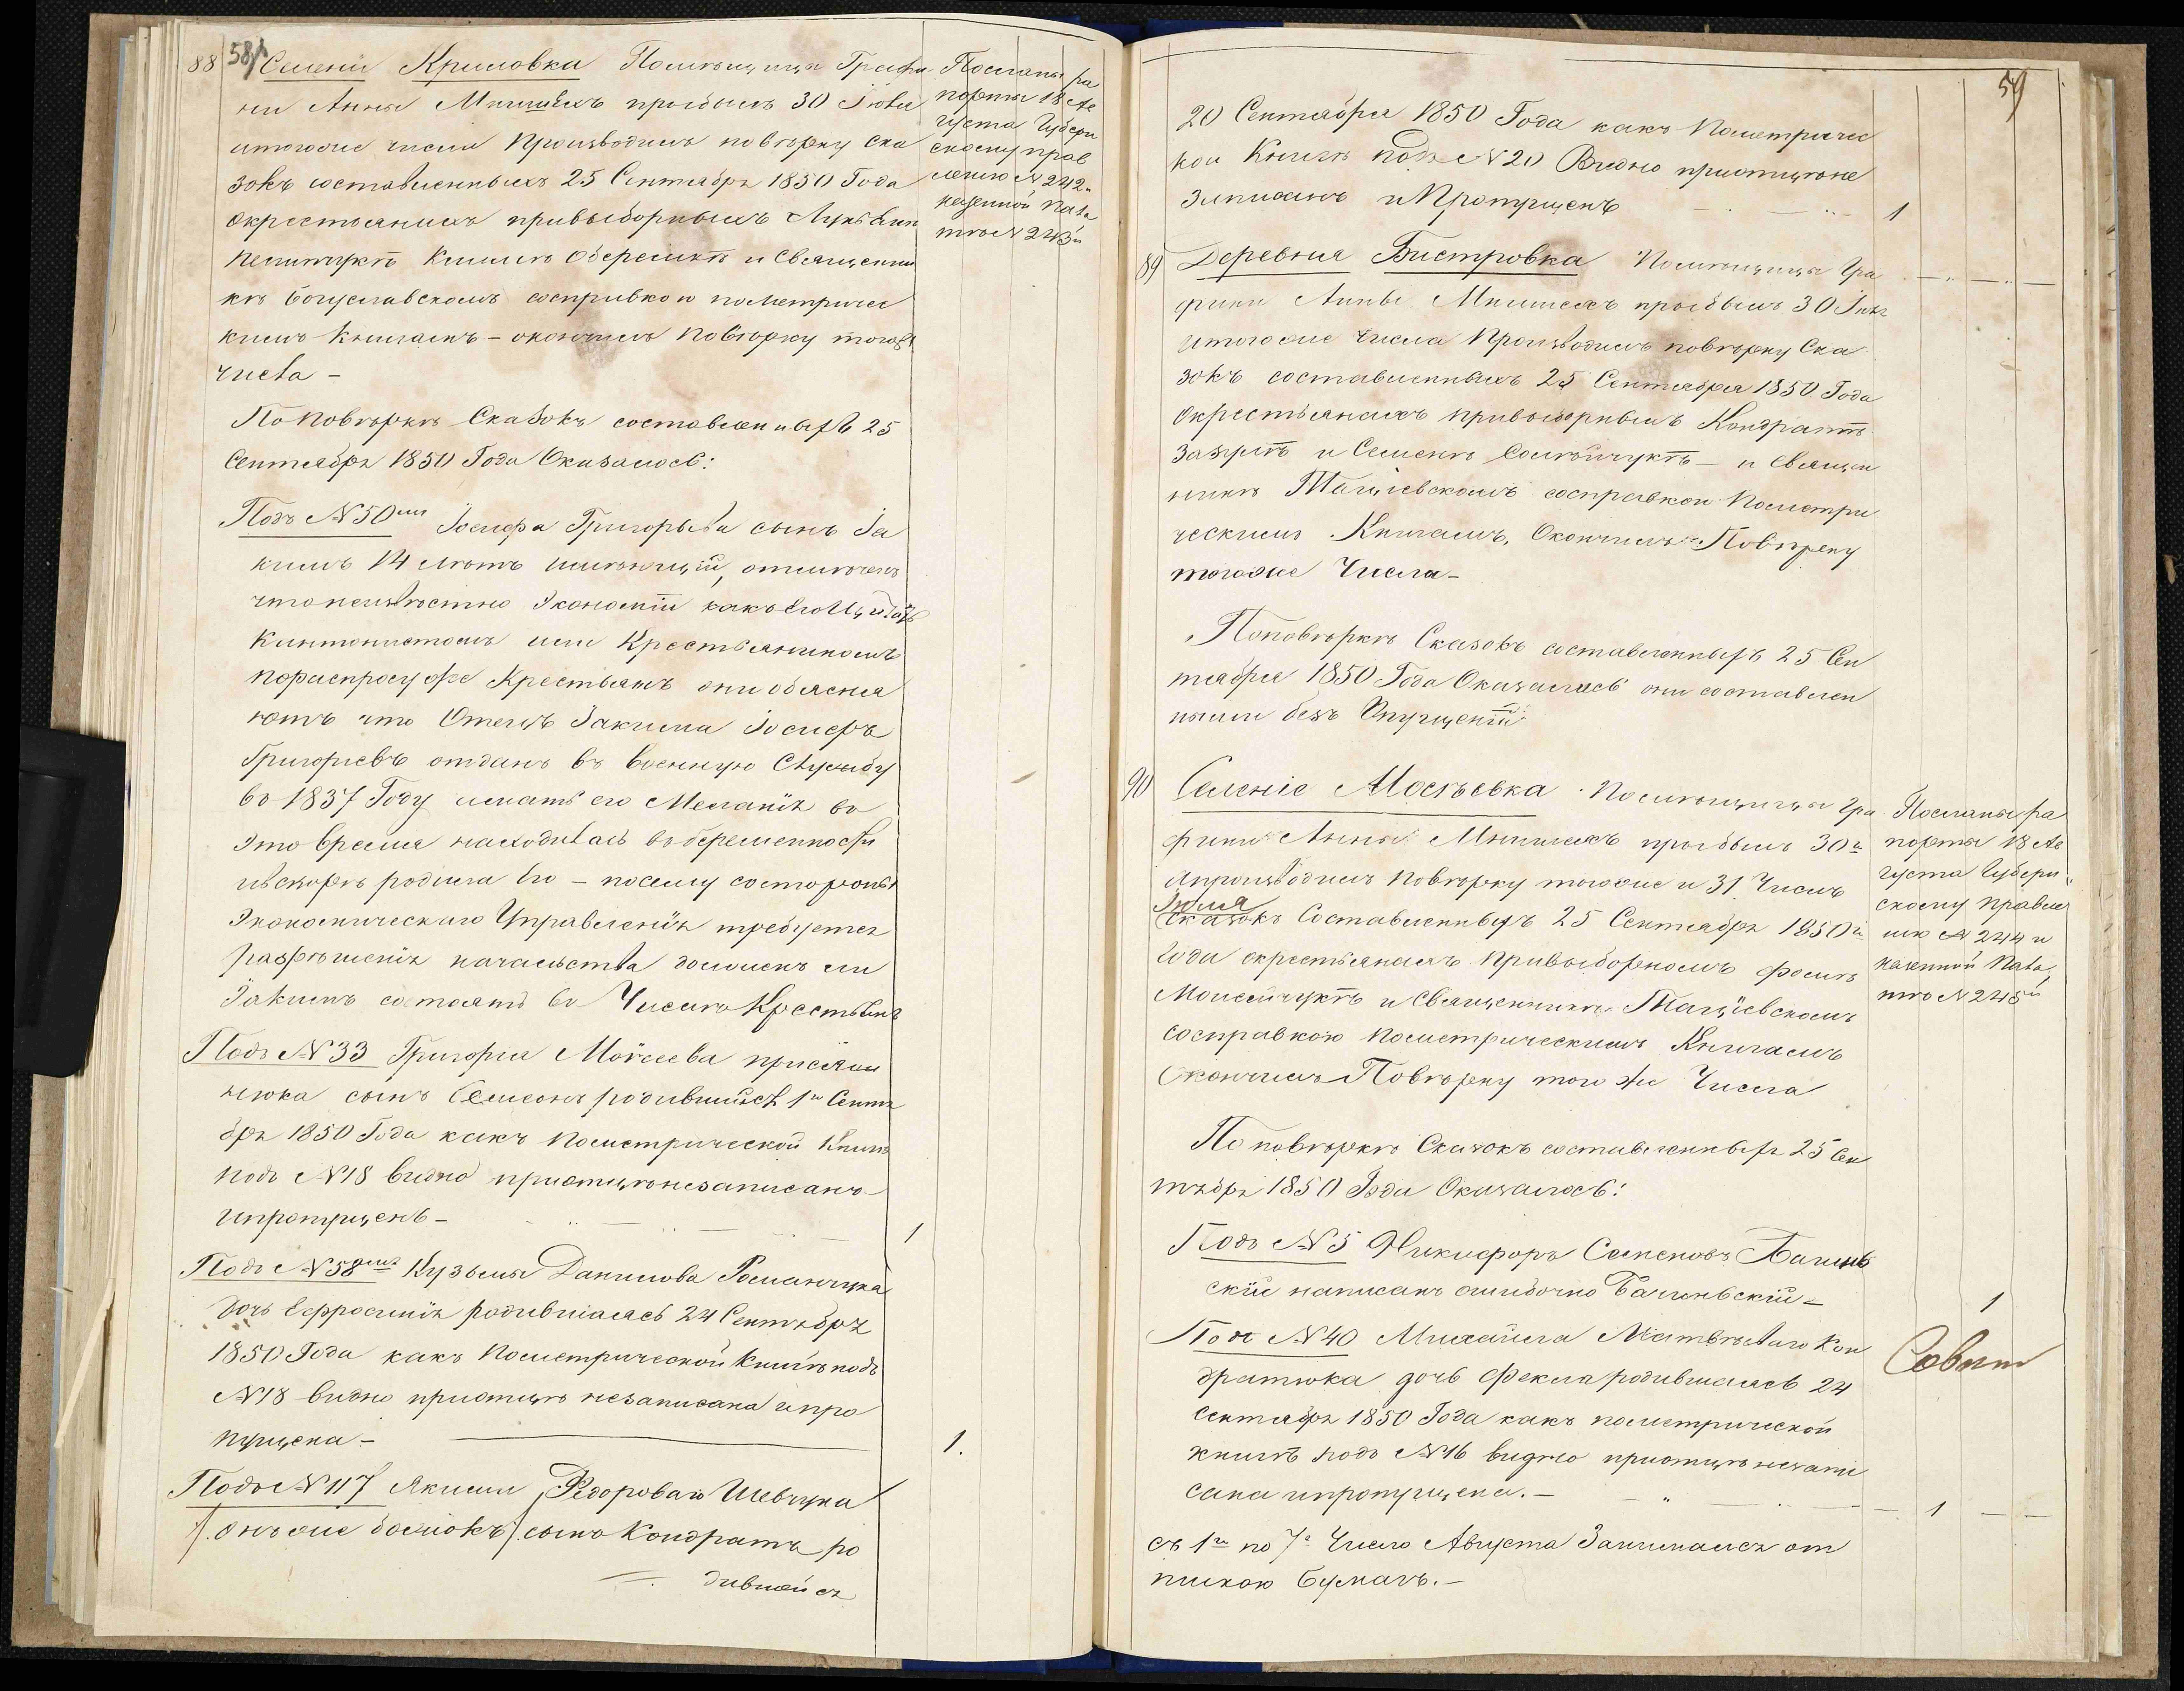 58
88 Селеніи Криловка Помѣщица Графи
ни Анны Мнишекъ прибылъ 30 Іюля
итогоже числа Производилъ повѣрку ска
зокъ составленныхъ 25 Сентября 1850 Года
окрестьянахъ привыборныхъ
и Священни
кѣ Богуславскомъ сосправкою пометричес
кимъ Книгамъ – окончилъ Повѣрку тогожъ
числа –
Посланы ра
порты 18 Ав
густа Губерн
скому прав
ленію № 242.
казенной Пала
тѣ № 243й
По повѣркѣ Сказокъ составленныхъ 25
Сентября 1850 Года Оказалось:
Подъ № 50мъ Іосифа Григорьева сынъ Іа
кимъ 14 лѣтъ имѣющій, отмѣченъ
что неизвѣстно Экономіи какъ его
Кантонистомъ или Крестьяниномъ
пораспросу же Крестьянъ они обясня
ютъ что Отецъ Іакима Іосифъ
Григорьевъ отданъ въ военную Службу
во 1837 Году имать его Меланія во
это время находилась вобеременности
ивскорѣ родила Его – посему состороны
Экономическаго Управленія требуется
разрѣшенія начальства долженъ ли
Іакимъ состоять во Числѣ Крестьянъ
Подъ № 33 Григорія Моѵсеева
нюка сынъ Семеонъ родившійся 1го Сентя
бря 1850 Года какъ Пометрической Книгѣ
подъ № 18 видно приотцѣ незаписанъ
ипропущенъ – 1
Подъ № 58мъ Кузьмы Данилова Романчука
дочь Ефросинія родившаяся 24 Сентября
1850 Года какъ Пометрической Книгѣ подъ
№ 18 видно приотцѣ незаписана ипро
пущена – 1.
Подъ № 117 Якима Ѳедорова Шевчука
онъ же сынъ Кондратъ ро
дившійся
59
20 Сентября 1850 Года какъ Пометричес
кой Книгѣ подъ № 20 Видно приотцѣ не
записанъ и Пропущенъ 1
89 Деревня Бистровка Помѣщицы Гра
фини Анны Мнишекъ прибылъ 30 Іюля
итогоже числа Производилъ повѣрку Ска
зокъ составленныхъ 25 Сентября 1850 Года
Окрестьянахъ привыборныхъ Кондратѣ
и Семенѣ и Священ
никѣ сосправкою Пометри
ческимъ Книгамъ, Окончилъ Повѣрку
тогоже Числа –
Поповѣркѣ Сказокъ составленныхъ 25 Сен
тября 1850 Года Оказалось они составлен
ными безъ Опущеній
90 Селеніе Мостьевка Помѣщицы Гра
фини Анны Мнишекъ прибылъ 30го
ипроизводилъ Повѣрку тогоже и 31 Числъ
Іюля
Сказокъ Составленныхъ 25 Сентября 1850го
Года окрестьянахъ Привыборномъ
Моисейчукѣ и Священникѣ
сосправкою Пометрическимъ Книгамъ
Окончилъ Повѣрку того же Числа
Посланы ра
порты 18 Ав
густа Губерн
скому правле
нію № 244 и
казенной Пала
тѣ № 245й
По повѣркѣ Сказокъ составленныхъ 25 Сен
тября 1850 Года Оказалось:
Подъ № 5 Никифоръ Семеновъ
скій написанъ ошибочно 1
Подъ № 40 Михаила Матвѣева Кон
дратюка дочь Фекла родившаяся 24
Сентября 1850 Года какъ пометрической
книгѣ подъ № 16 видно приотцѣ незапи
сана ипропущена. – 1
съ 1го по 7е Число Августа Занимался от
пискою бумагъ. –